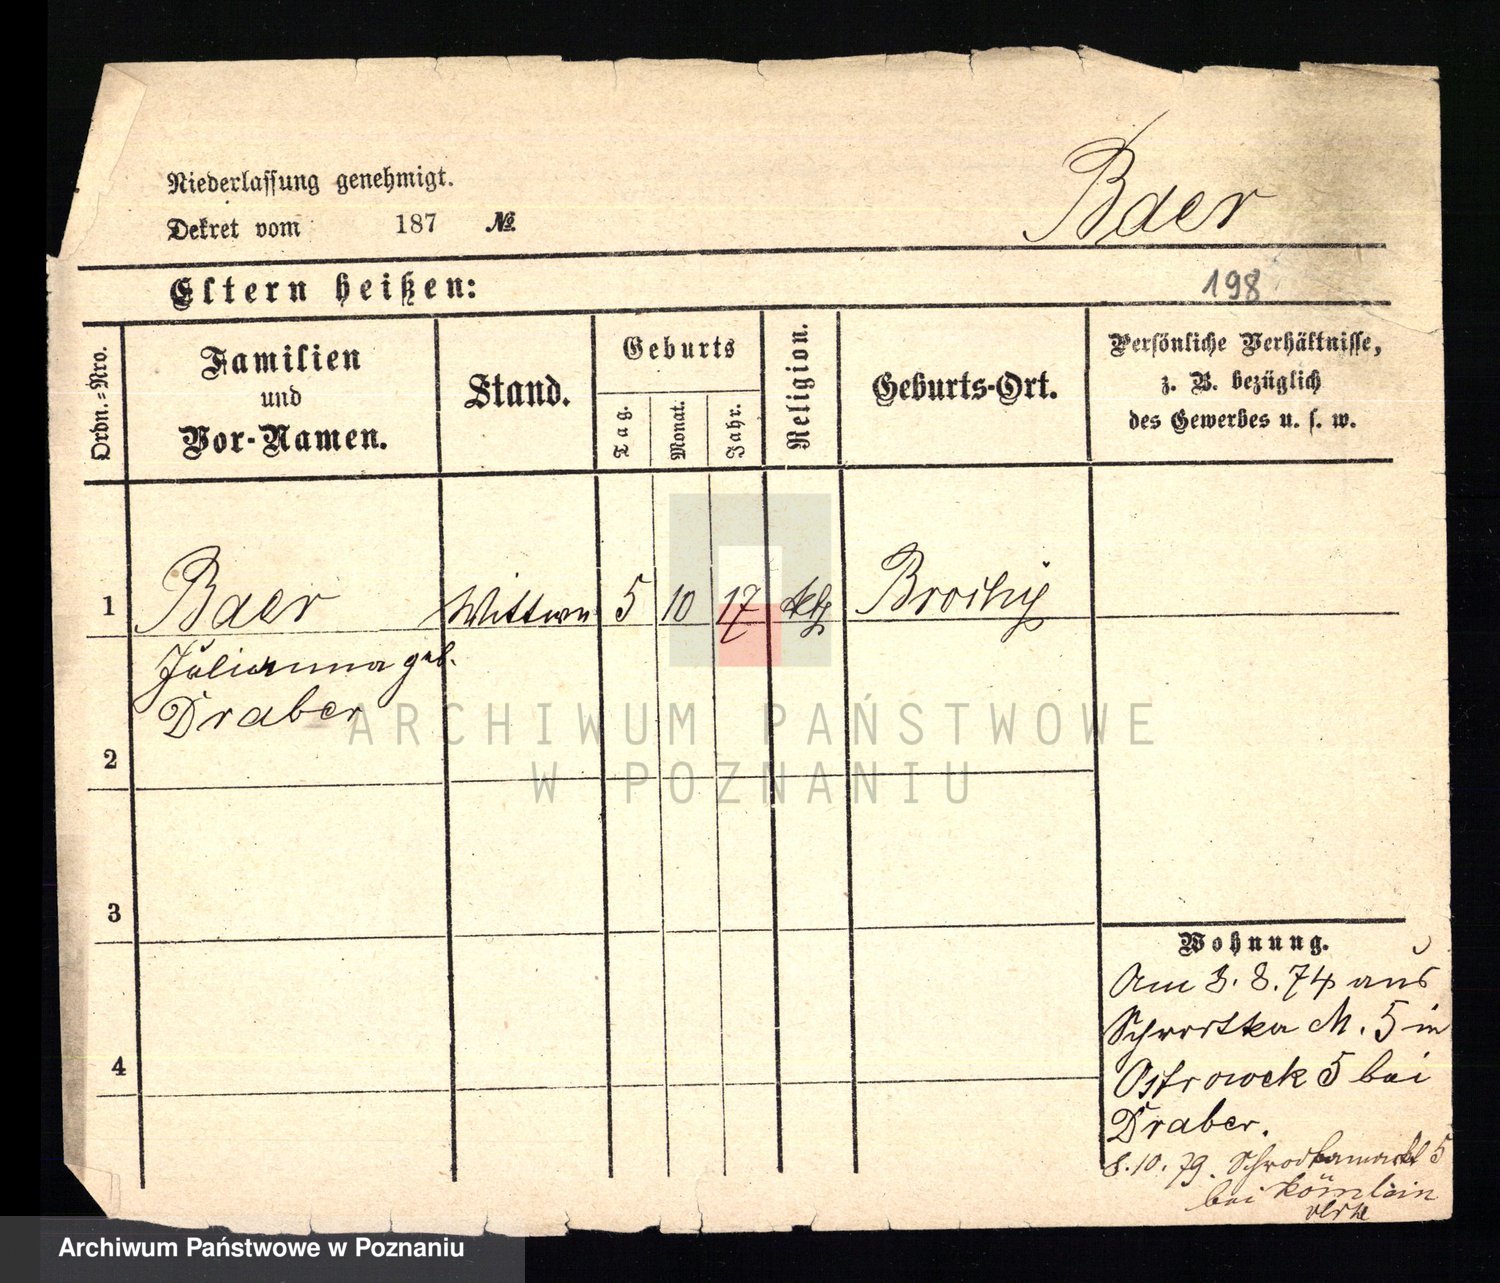 Baer
Niederlassung genehmigt.
Dekret vom 187 №
Eltern heißen:
198
Ordn.-Nro.
Familien
und
Vor-Namen.
Stand.
Geburts
Tag.
Monat.
Jahr.
Religion.
Geburts-Ort.
Persönliche Verhältnisse,
z. B. bezüglich
des Gewerbes u. s. w.
1 Baer Wittwe 5 10 17 kth
Julianna geb.
Draber
2
3
4
Wohnung.
Am 3. 8. 74 aus
Schrotka M. 5 in
Ostrowek 5 bei
Draber.
8. 10. 79. Schrodkamarkt 5
bei
ARCHIWUM PAŃSTWOWE
W POZNANIU
Archiwum Państwowe w Poznaniu